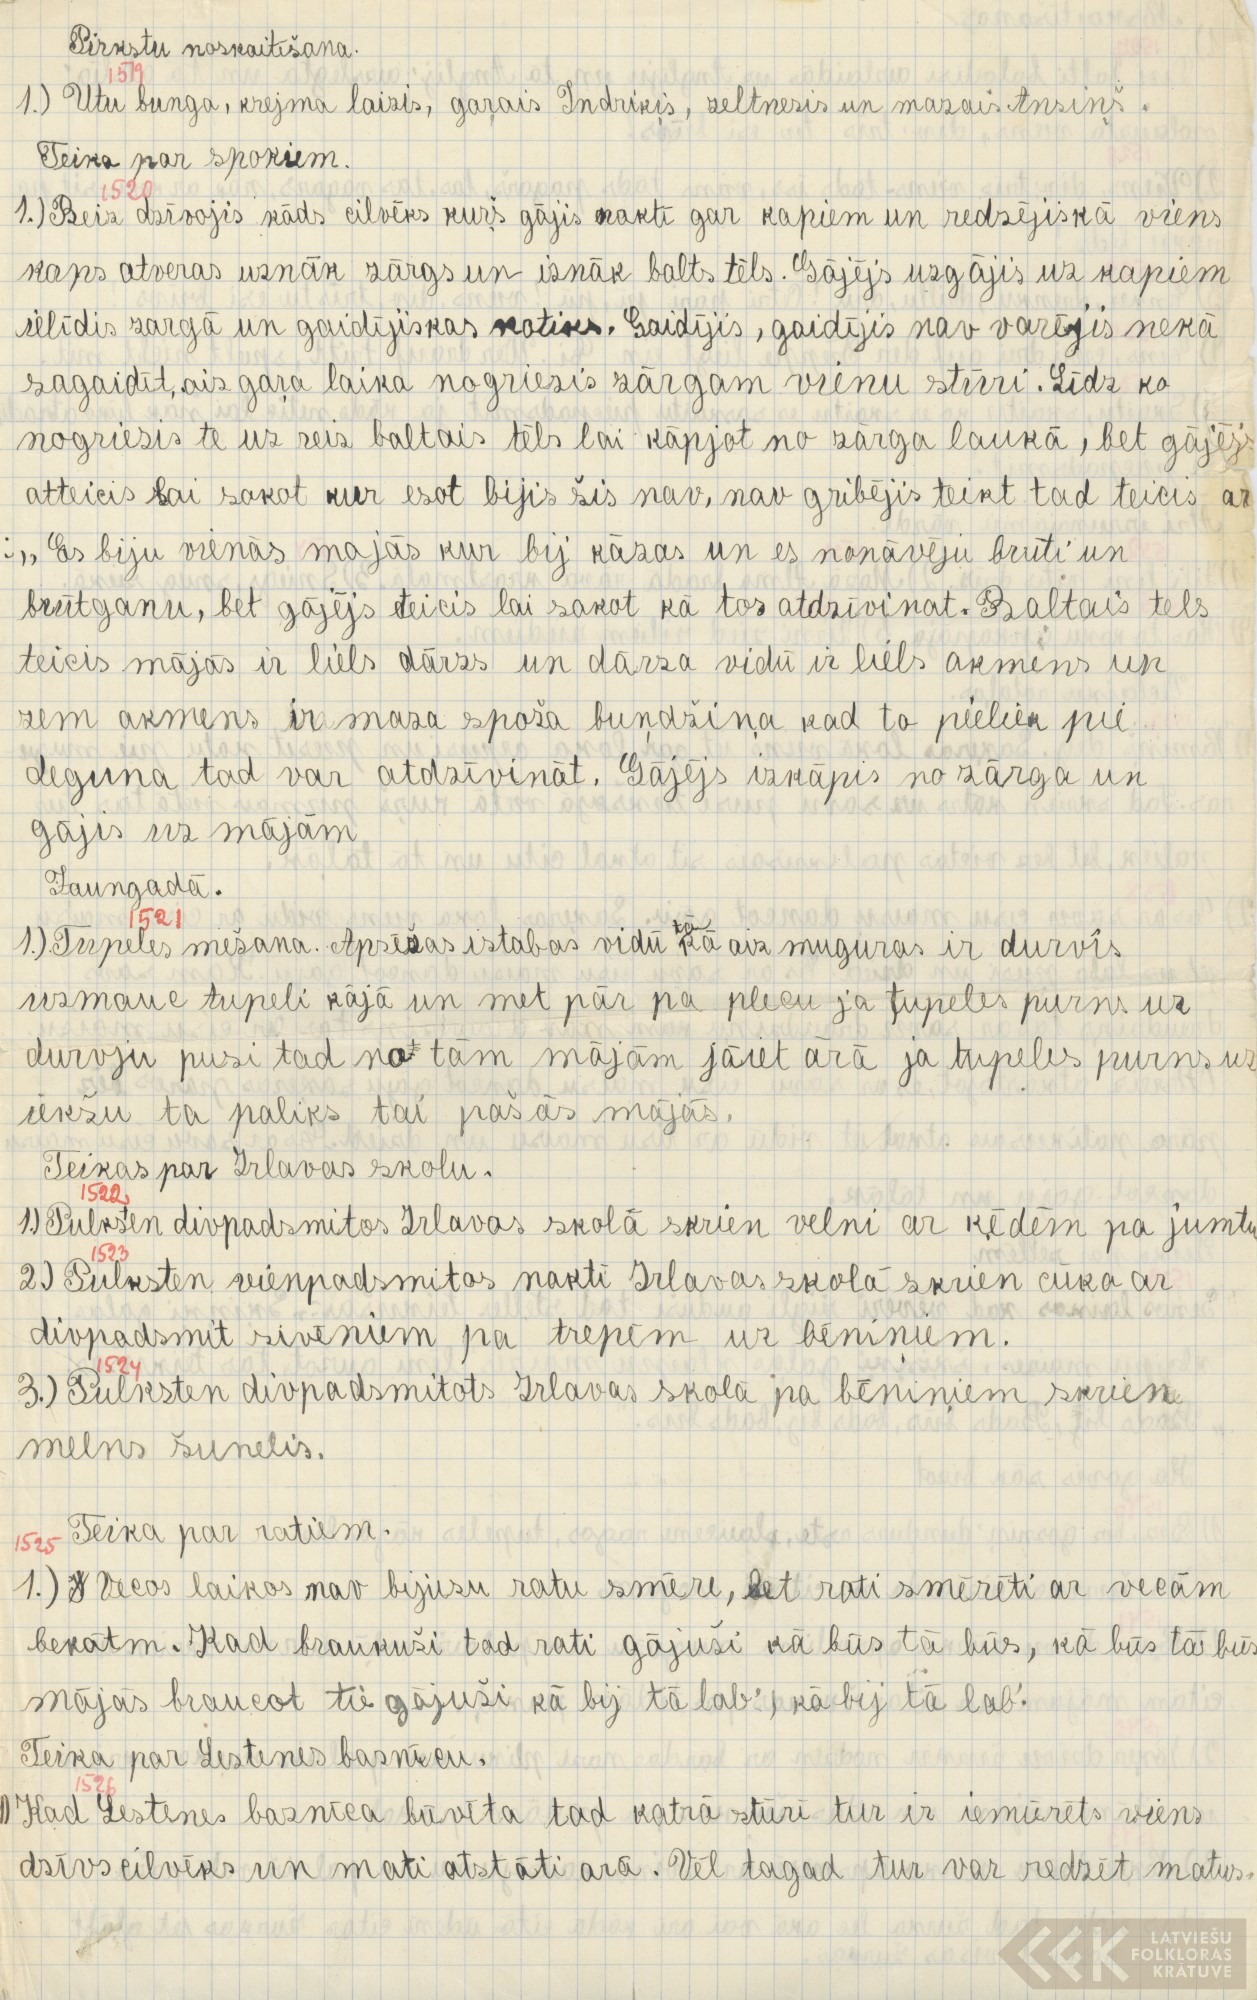 Pirkstu noskaitīšana.
1519
1.) Utu bunga, krejma laizis, garais Indriķis, zeltnesis un mazais Ansiņš.
Teika par spokiem.
1520
1.) Reiz dzīvojis kāds cilvēks kurš gājis naktī gar kapiem un redzējis kā viens
kaps atveras uznāk zārgs un iznāk balts tēls. Gājējs uzgājis uz kapiem
ielīdis zargā un gaidījis kas notiks. Gaidījis, gaidījis nav varējis nekā
sagaidīt, aiz gaŗa laika nogriezis zārgam vienu stūri. Līdz ko
nogriezis te uz reiz baltais tēls lai kāpjot no zārga laukā, bet gājējs
atteicis lai sakot kur esot bijis šis nav, nav gribējis teikt tad teicis ar
:„ Es biju vienās majās kur bij kāzas un es nonāvēju brūti un
brūtganu, bet gājējs teicis lai sakot kā tos atdzīvinat. Baltais tels
teicis mājās ir liels dārzs un dārza vidū ir liels akmens un
zem akmens ir maza spoža bundžiņa kad to pieliek pie
deguna tad var atdzīvināt. Gājējs izkāpis no zārga un
gājis uz mājām
Jaungadā.
1521
1.) Tupeles mešana. Apsēžas istabas vidū tā kā aiz muguras ir durvīs
uzmauc tupeli kājā un met pār pa plecu ja tupeles purns uz
durvju pusi tad no tām mājām jāiet ārā ja tupeles purns uz
iekšu ta paliks tai pašās mājās.
Teikas par Irlavas skolu.
1522
1.) Pulksten divpadsmitos Irlavas skolā skrien velni ar ķēdēm pa jumtu
1523
2.) Pulksten vienpadsmitos naktī Irlavas skolā skrien cūka ar
divpadsmit sivēniem pa trepēm uz bēniņiem.
1524
3.) Pulksten divpadsmitots Irlavas skolā pa bēniņiem skrien
melns šunelis.
1525 Teika par ratiem.
1.) Vecos laikos nav bijusu ratu smēre, bet rati smērēti ar vecām
bekātm. Kad braukuši tad rati gājuši kā būs tā būs, kā būs tā būs
mājās braucot tie gājuši kā bij tā lab', kā bij tā lab'.
Teika par Lestenes baznīcu.
1526
1) Kad Lestenes baznīca būvīta tad katrā stūrī tur ir iemūrēts viens
dzīvs cilvēks un mati atstāti arā. Vēl tagad tur var redzēt matus.
LATVIEŠU
FOLKLORAS
KRĀTUVE